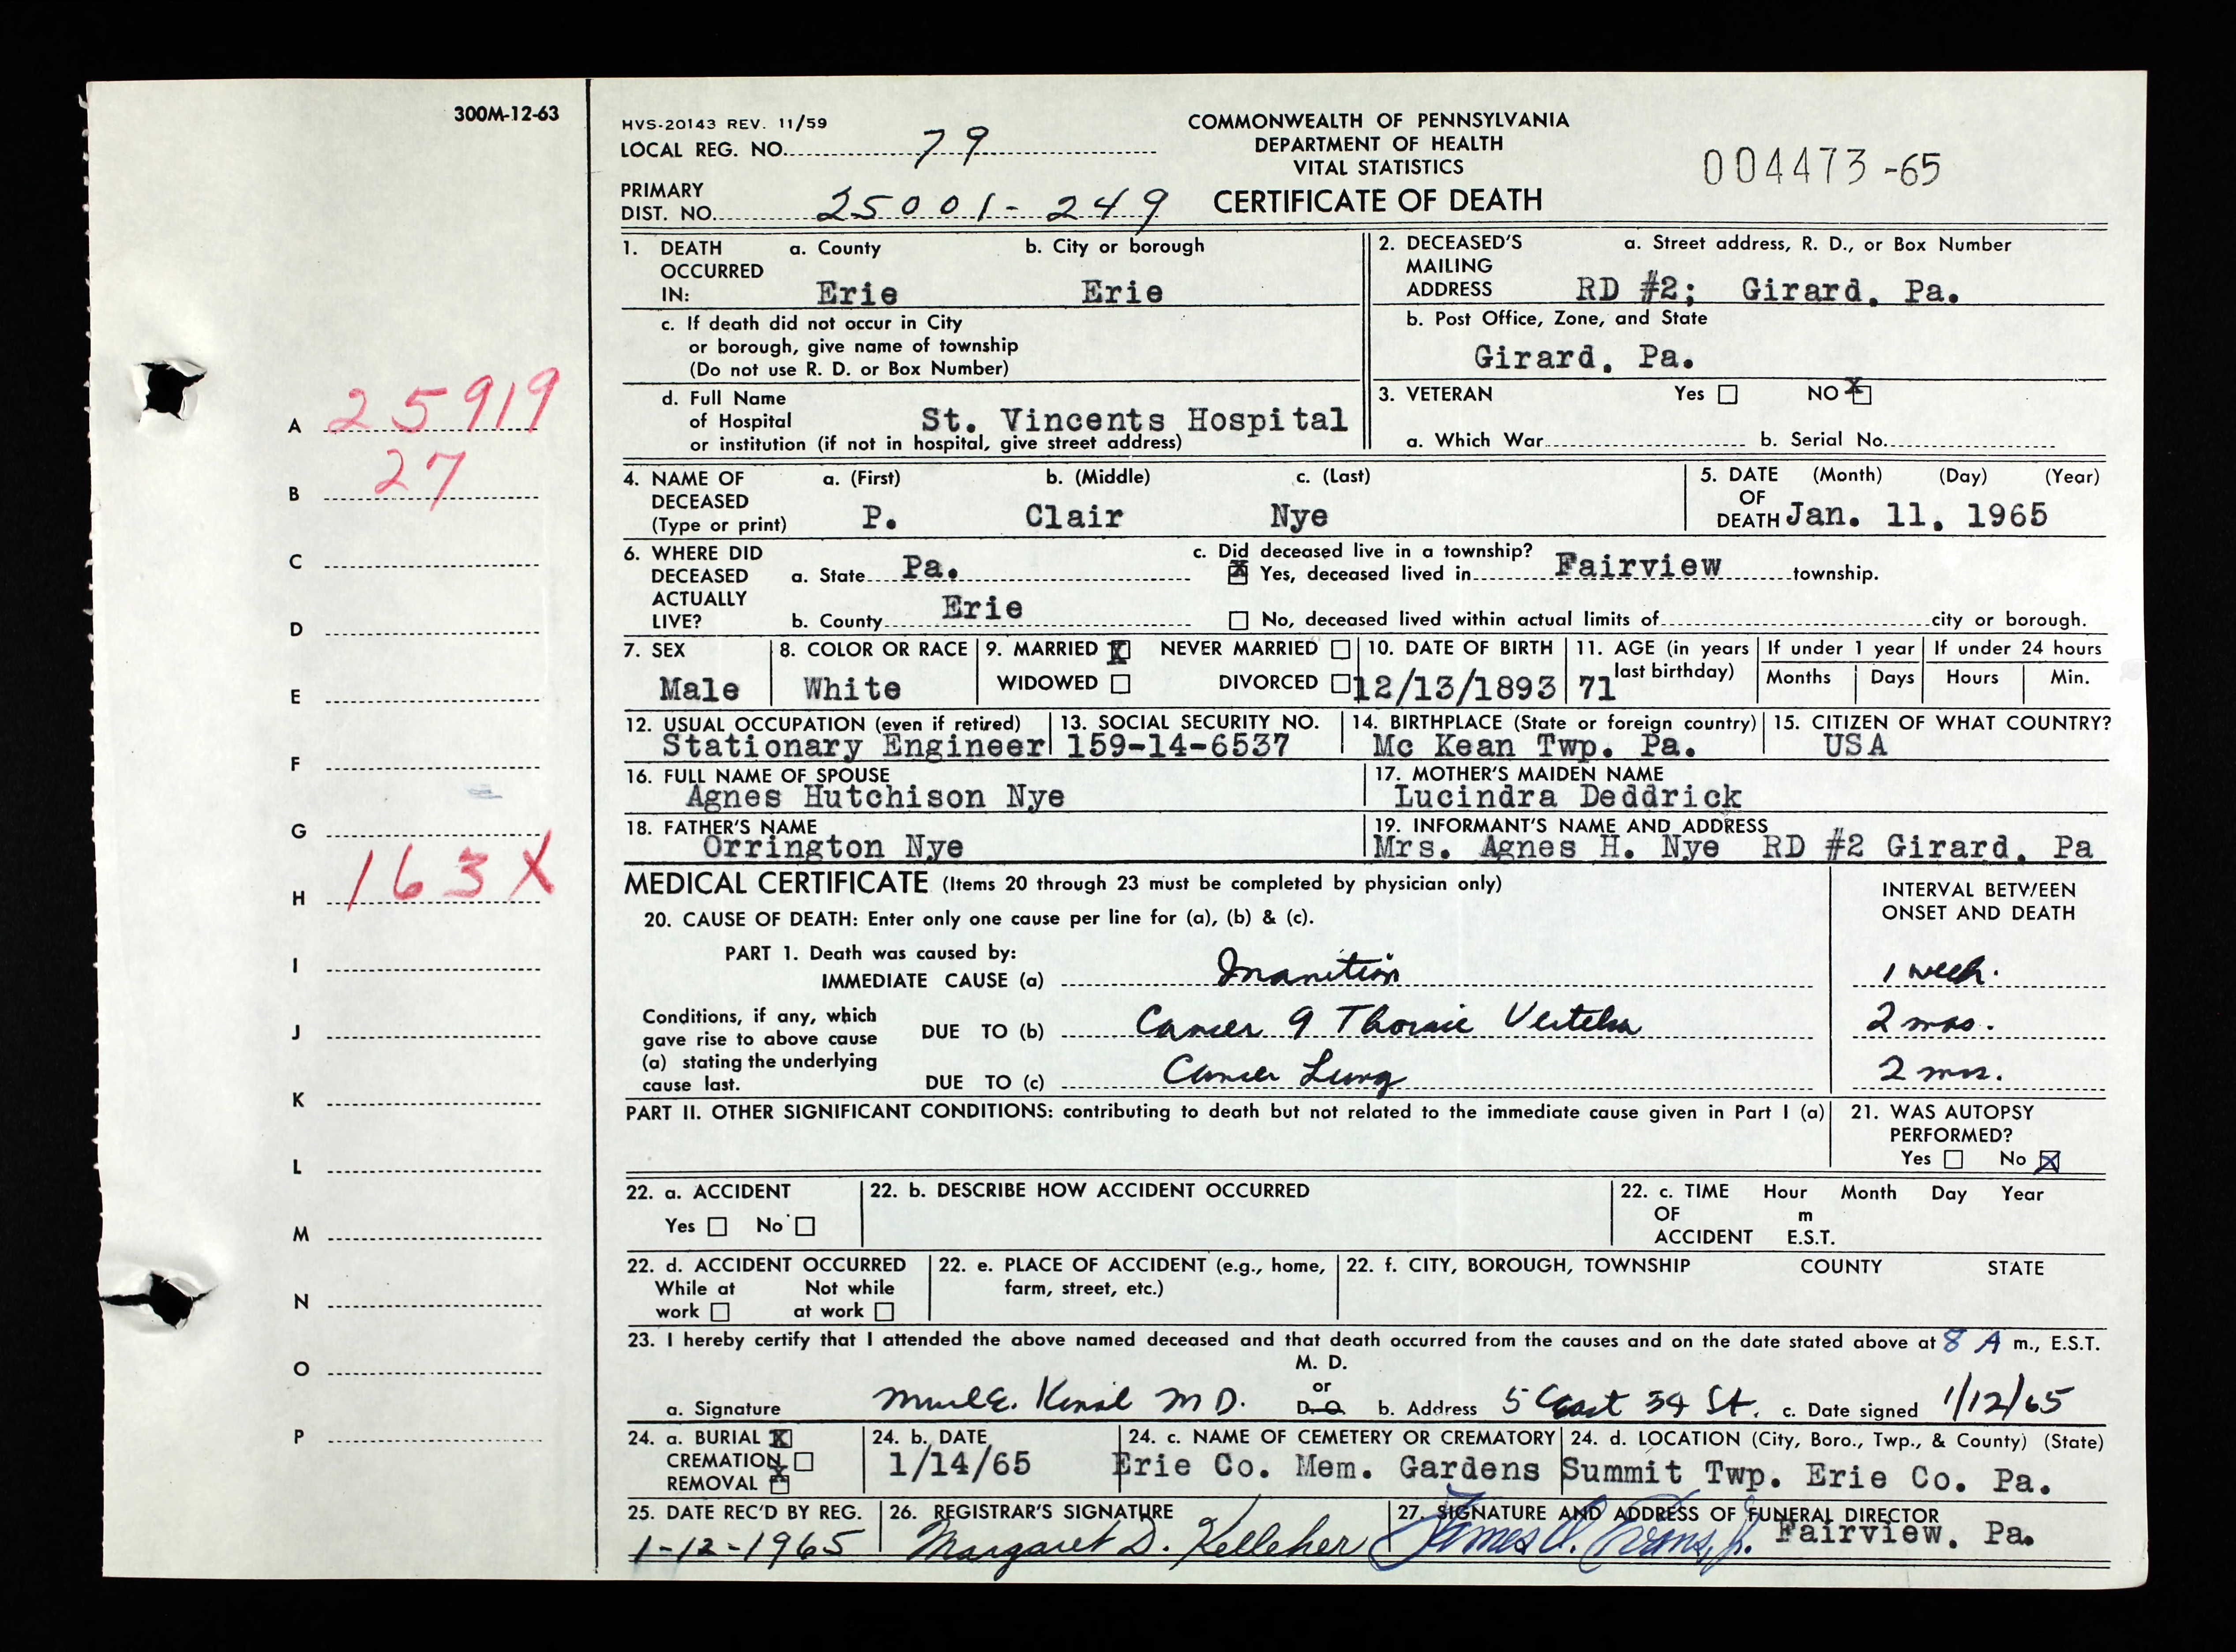 300M-12-63
HVS-20143 REV. 11/59
LOCAL REG. NO. 79
COMMONWEALTH OF PENNSYLVANIA
DEPARTMENT OF HEALTH
VITAL STATISTICS
CERTIFICATE OF DEATH
004473-65
PRIMARY
DIST. NO. 25001-249
1. DEATH OCCURRED IN: a. County b. City or borough
Erie Erie
c. If death did not occur in City
or borough, give name of township
(Do not use R. D. or Box Number)
d. Full Name
of Hospital St. Vincents Hospital
or institution (if not in hospital, give street address)
2. DECEASED'S MAILING ADDRESS a. Street address, R. D., or Box Number
RD #2; Girard, Pa.
b. Post Office, Zone, and State
Girard, Pa.
3. VETERAN Yes NO X
a. Which War b. Serial No.
4. NAME OF DECEASED (Type or print) a. (First) b. (Middle) c. (Last)
P. Clair Nye
5. DATE OF DEATH (Month) (Day) (Year)
Jan. 11, 1965
6. WHERE DID DECEASED ACTUALLY LIVE?
a. State Pa.
b. County Erie
c. Did deceased live in a township?
X Yes, deceased lived in Fairview township.
No, deceased lived within actual limits of city or borough.
7. SEX
Male
8. COLOR OR RACE
White
9. MARRIED X NEVER MARRIED
WIDOWED DIVORCED
10. DATE OF BIRTH
12/13/1893
11. AGE (in years last birthday)
71
If under 1 year
Months Days
If under 24 hours
Hours Min.
12. USUAL OCCUPATION (even if retired)
Stationary Engineer
13. SOCIAL SECURITY NO.
159-14-6537
14. BIRTHPLACE (State or foreign country)
Mc Kean Twp. Pa.
15. CITIZEN OF WHAT COUNTRY?
USA
16. FULL NAME OF SPOUSE
Agnes Hutchison Nye
17. MOTHER'S MAIDEN NAME
Lucindra Deddrick
18. FATHER'S NAME
Orrington Nye
19. INFORMANT'S NAME AND ADDRESS
Mrs. Agnes H. Nye RD #2 Girard, Pa
MEDICAL CERTIFICATE (Items 20 through 23 must be completed by physician only)
INTERVAL BETWEEN
ONSET AND DEATH
20. CAUSE OF DEATH: Enter only one cause per line for (a), (b) & (c).
PART 1. Death was caused by:
IMMEDIATE CAUSE (a) Inanition 1 week.
Conditions, if any, which
gave rise to above cause
(a) stating the underlying
cause last.
DUE TO (b) Cancer 9 Thoracic Vertebra 2 mos.
DUE TO (c) Cancer Lung 2 mos.
PART II. OTHER SIGNIFICANT CONDITIONS: contributing to death but not related to the immediate cause given in Part I (a)
21. WAS AUTOPSY
PERFORMED?
Yes No X
22. a. ACCIDENT
Yes No
22. b. DESCRIBE HOW ACCIDENT OCCURRED
22. c. TIME OF ACCIDENT Hour Month Day Year
m
E.S.T.
22. d. ACCIDENT OCCURRED
While at work Not while at work
22. e. PLACE OF ACCIDENT (e.g., home,
farm, street, etc.)
22. f. CITY, BOROUGH, TOWNSHIP COUNTY STATE
23. I hereby certify that I attended the above named deceased and that death occurred from the causes and on the date stated above at 8 A m., E.S.T.
M. D.
or
D.O.
a. Signature M D.
b. Address East 34 St.
c. Date signed 1/12/65
24. a. BURIAL X
CREMATION
REMOVAL X
24. b. DATE
1/14/65
24. c. NAME OF CEMETERY OR CREMATORY
Erie Co. Mem. Gardens
24. d. LOCATION (City, Boro., Twp., & County) (State)
Summit Twp. Erie Co. Pa.
25. DATE REC'D BY REG.
1-12-1965
26. REGISTRAR'S SIGNATURE
Margaret D. Kelleher
27. SIGNATURE AND ADDRESS OF FUNERAL DIRECTOR
James Evans, Jr. Fairview, Pa.
A 25919
B 27
C
D
E
F
G
H 163X
I
J
K
L
M
N
O
P